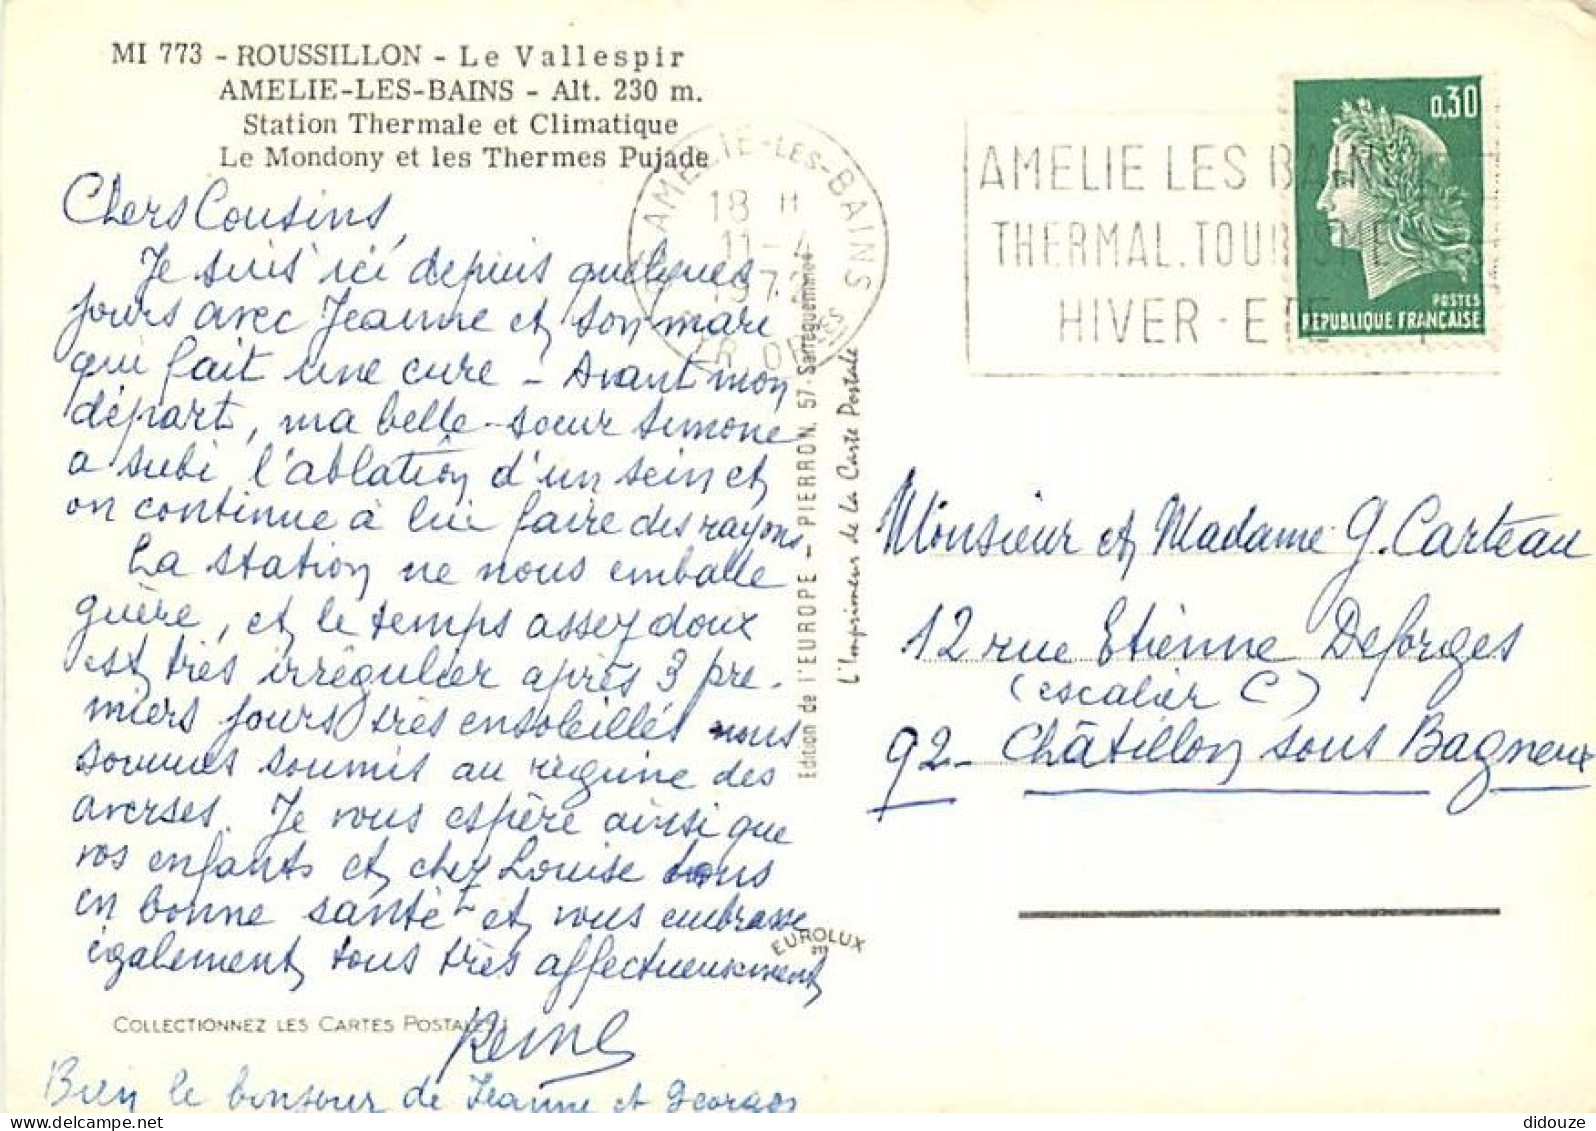 MI 773 - ROUSSILLON - Le Vallespir
AMELIE-LES-BAINS - Alt. 230 m.
Station Thermale et Climatique
Le Mondony et les Thermes Pujade
Chers Cousins,
Je suis ici depuis quelques
jours avec Jeanne et son mari
qui fait une cure - Avant mon
départ, ma belle-soeur Simone
a subi l'ablation d'un sein et
on continue à lui faire des rayons
La station ne nous emballe
guère, et le temps assez doux
est très irrégulier après 3 pre-
miers jours très ensoleillés nous
sommes soumis au régime des
averses. Je vous espère ainsi que
vos enfants et chez Louise tous
en bonne santé et vous embrasse
également tous très affectueusement
COLLECTIONNEZ LES CARTES POSTALES
Reine
Bien le bonjour de Jeanne et Georges
AMELIE-LES-BAINS
18 H
11-4
197
PYR. ORLES
Edition de l'EUROPE - PIERRON, 57-Sarreguemines
L'Imprimeur de la Carte Postale
EUROLUX
AMELIE LES BAINS
THERMAL.TOURISME
HIVER-ETE
0,30
POSTES
REPUBLIQUE FRANÇAISE
Monsieur et Madame G. Carteau
12 rue Etienne Deforges
(escalier C)
92- Châtillon sous Bagneux
didouze